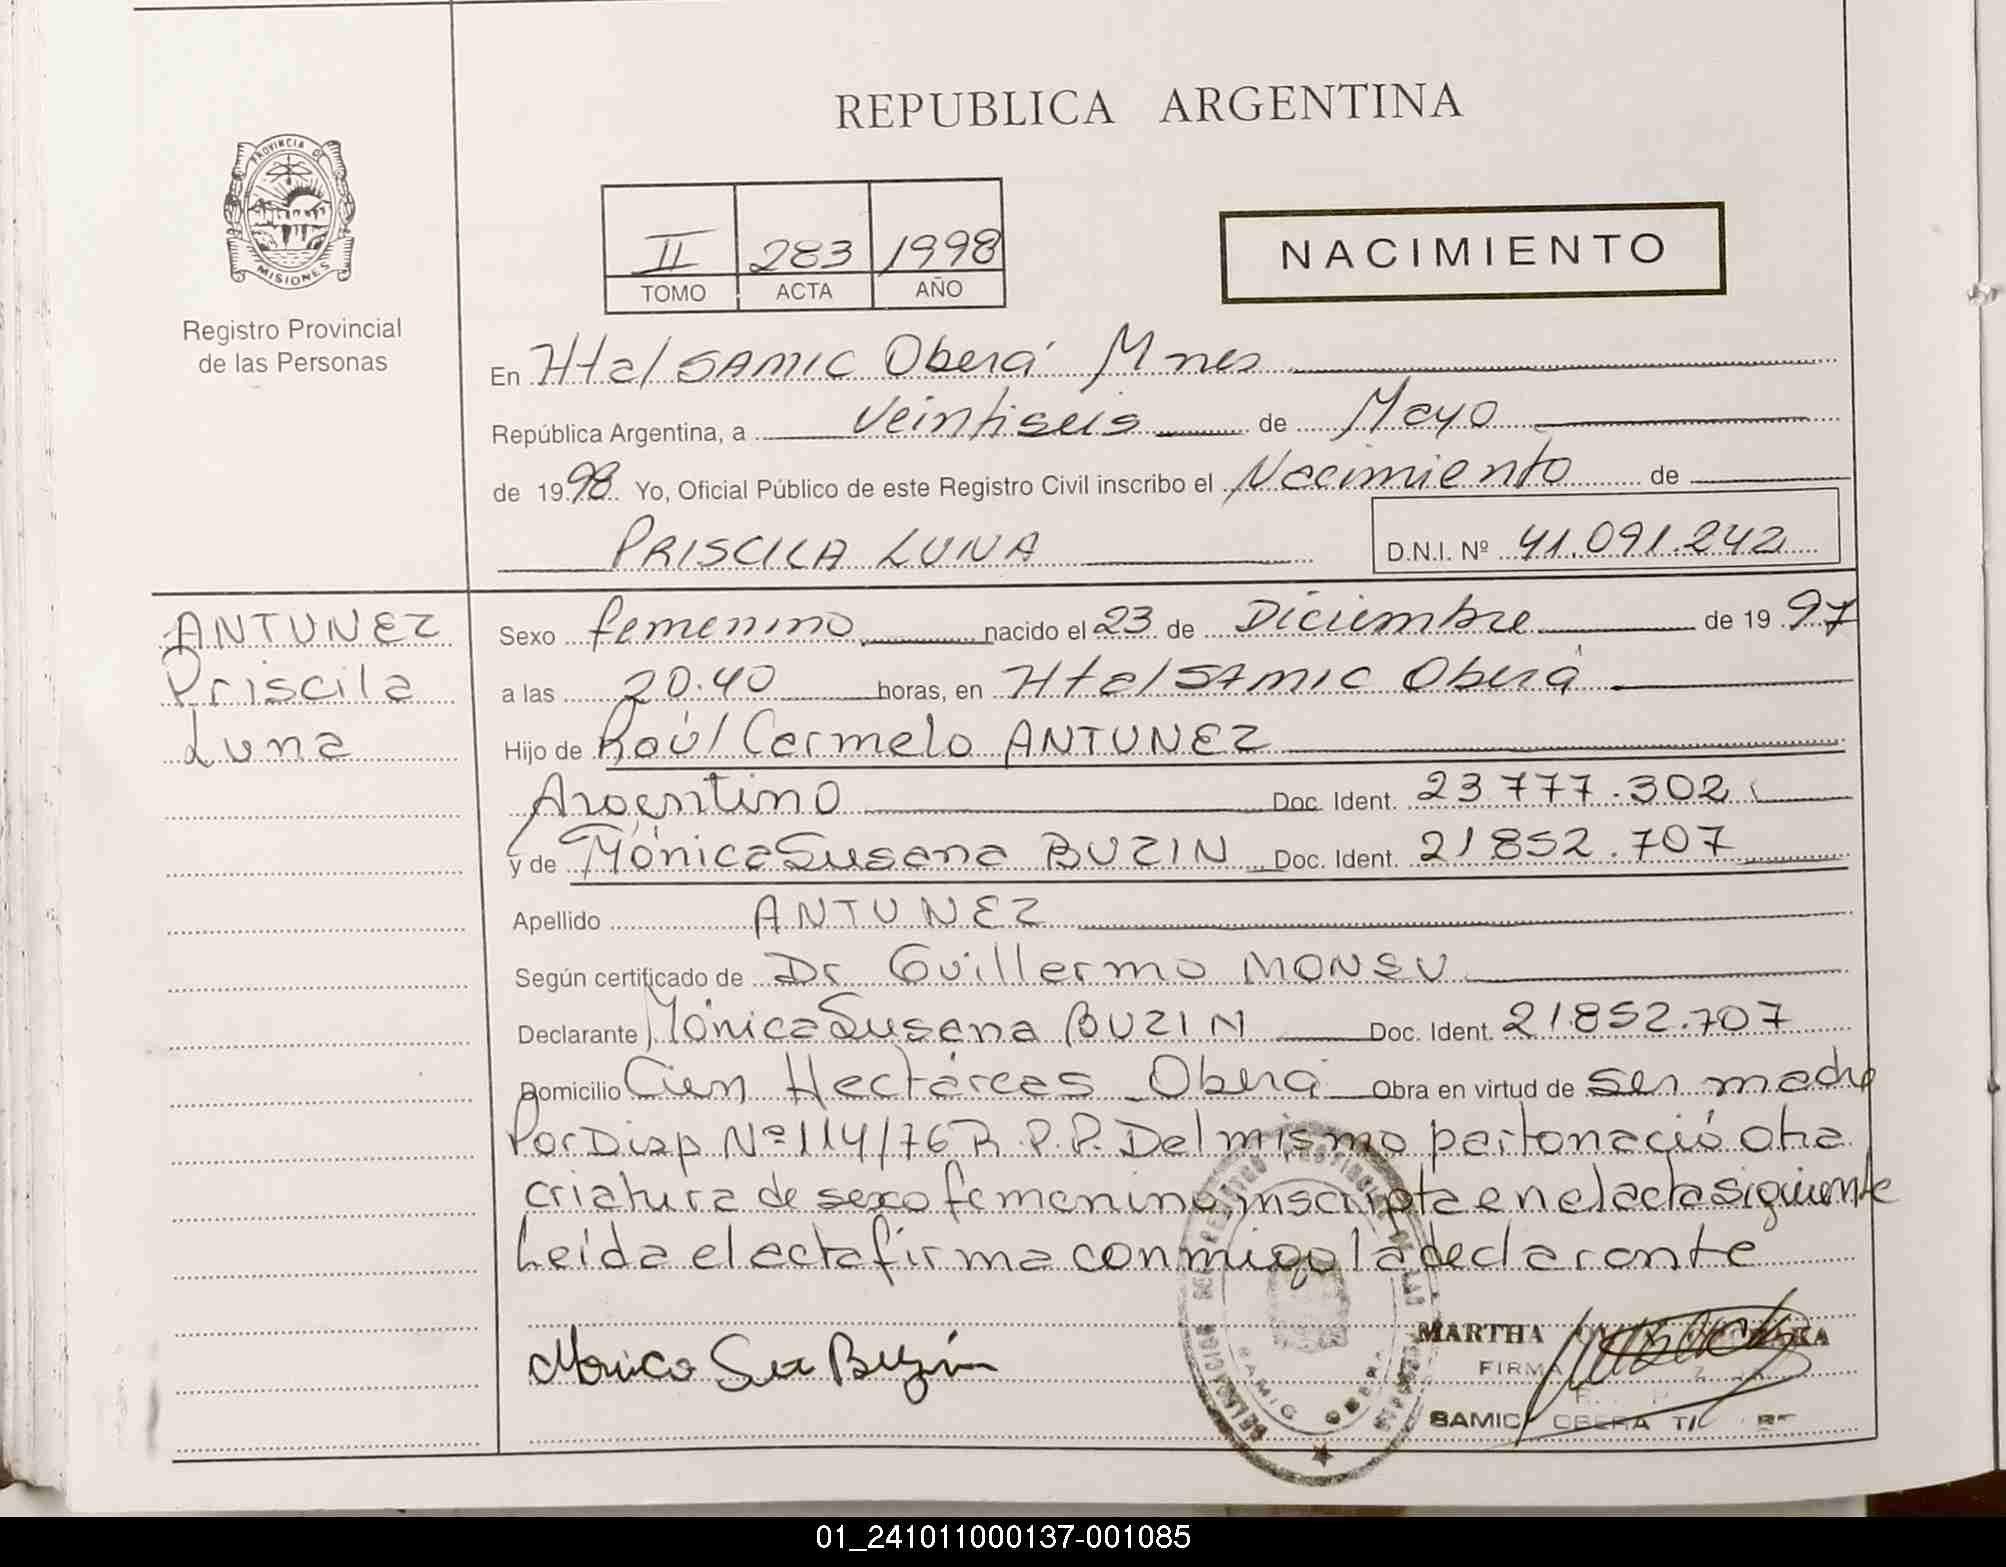 REPUBLICA ARGENTINA
PROVINCIA DE
MISIONES
Registro Provincial
de las Personas
II 283 1998
TOMO ACTA AÑO
NACIMIENTO
En Htal SAMIC Oberá Mnes
República Argentina, a veintiseis de Mayo
de 1998 Yo, Oficial Público de este Registro Civil inscribo el Nacimiento de
PRISCILA LUNA D.N.I. Nº 41.091.242
ANTUNEZ
Priscila
Luna
Sexo femenino nacido el 23 de Diciembre de 1997
a las 20.40 horas, en Htal SAMIC Oberá
Hijo de Raúl Carmelo ANTUNEZ
Argentino Doc. Ident. 23 777.302
y de Mónica Susana BUZIN Doc. Ident. 21852.707
Apellido ANTUNEZ
Según certificado de Dr Guillermo MONSU
Declarante Mónica Susana BUZIN Doc. Ident. 21.852.707
Domicilio Cien Hectáreas Oberá Obra en virtud de ser madre
Por Disp Nº 114/76 R.P.P. Del mismo parto nació otra
criatura de sexo femenino, inscripta en el acta siguiente
Leída el acta firma conmigo la declarante
Monica Su Buzin
DELEGACION DEL REGISTRO PROVINCIAL DE LAS PERSONAS
SAMIC OBERA
MARTHA
FIRMA
SAMIC OBERA
01_241011000137-001085